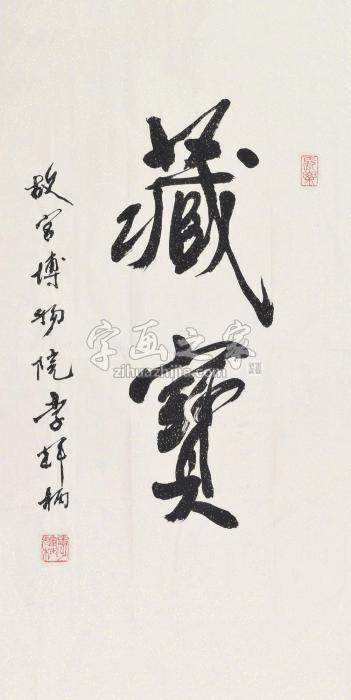 藏寳
故宫博物院李輝柄
字画之家
zihuazhijia.com